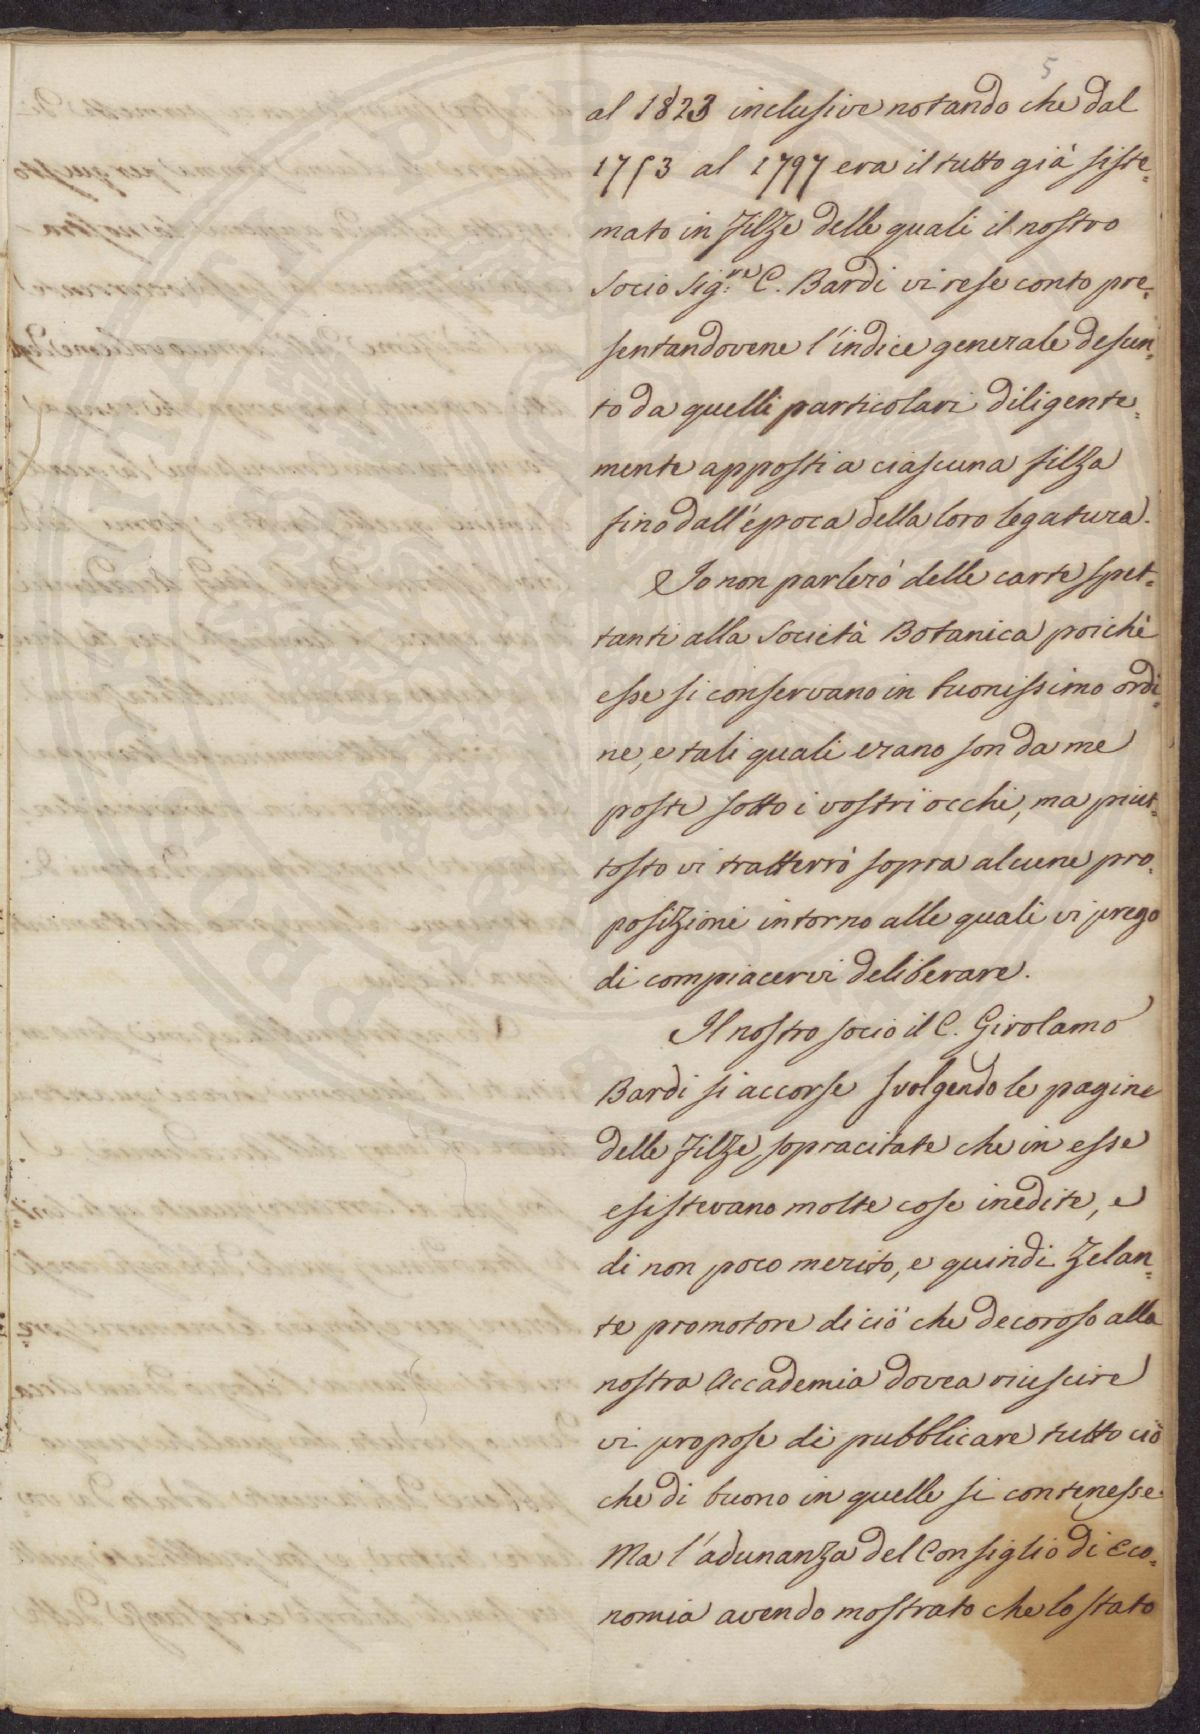 5
al 1823 inclusive notando che dal
1753 al 1797 era il tutto già siste=
mato in Filze delle quali il nostro
socio Sig.re C. Bardi vi rese conto pre=
sentandovene l'indice generale desun=
to da quelli particolari diligente=
mente apposti a ciascuna filza
fino dall'época della loro legatura.
Io non parlerò delle carte spet=
tanti alla Società Botanica poichè
esse si conservano in buonissimo ordi=
ne, e tali quali erano son da me
poste sotto i vostri occhi, ma piut=
tosto vi tratterrò sopra alcune pro=
posizioni intorno alle quali vi prego
di compiacervi deliberare.
Il nostro socio il C. Girolamo
Bardi si accorse svolgendo le pagine
delle Filze sopracitate che in esse
esistevano molte cose inedite, e
di non poco merito, e quindi Zelan=
te promotore di ciò che decoroso alla
nostra Accademia dovea riuscire
vi propose di pubblicare tutto ciò
che di buono in quelle si contenesse.
Ma l'adunanza del Consiglio di Eco=
nomia avendo mostrato che lo stato